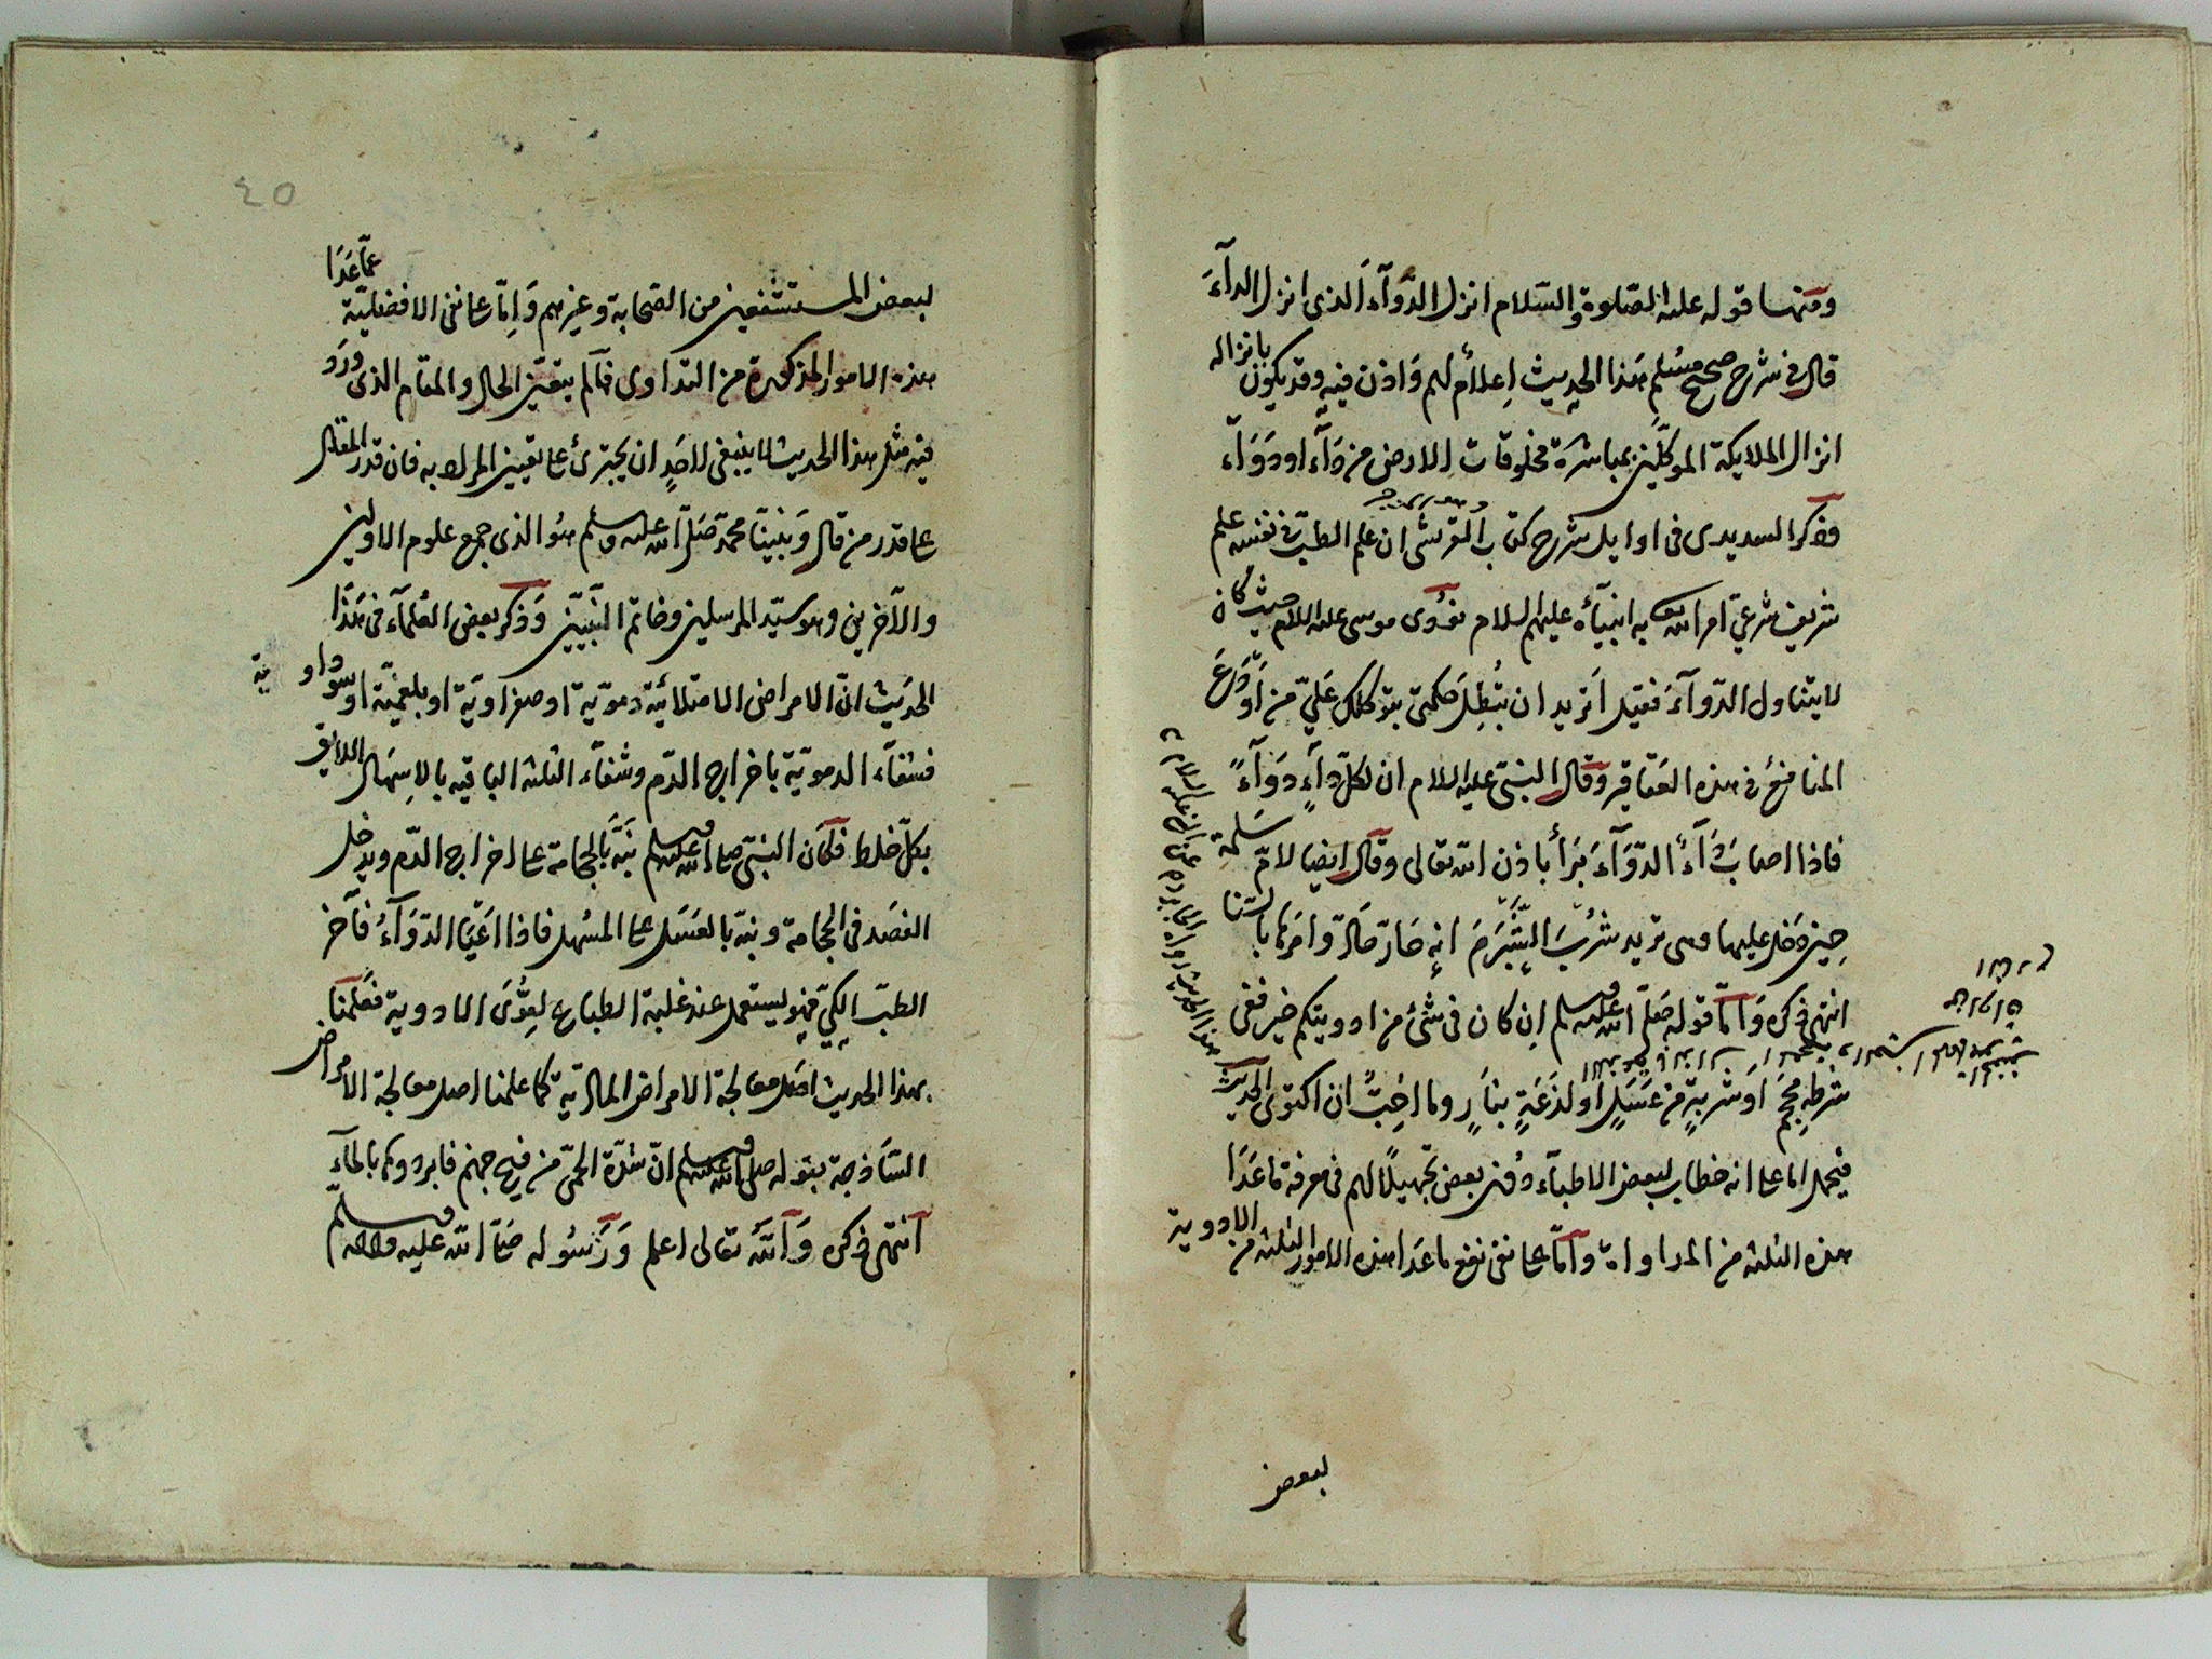 ومنها قوله عليه الصلوة والسلام انزل الدوآء الذى انزل الدآءَ
قال فى شرح صحيح مسلم هذا الحديث اعلام لهم وَاذن فيه وقد يكون بانزاله
انزال الملايكة الموكلين بمباشرة مخلوقات الارض من دَآء او دَوَآء
وذكر السديدى فى اوايل شرح كتاب القرشى ان علم الطب فى نفسه علم
شريف شرعىّ امر الله تع به انبيآئه عليهم السلام فرُوى موسى عليه السلام حيث كان
لا يتناول الدّوآءَ فقيل اَتريد ان تُبطِلَ حكمتى بتوكلك عَلَىّ من اَوْدَعَ
المنافع فى هذه العَقاقير وقال النبىّ عليه السلام ان لكلّ دآءٍ دَوَآءً
فاذا اصاب دَآءً الدّوَآءَ بَرَأ باذن الله تعالى وقال ايضا لامّ سَلمة
حِين دَخل عليها وهى تريد شُرْبَ الشُّبْرُمَ انه حَارّ حَارّ وامَرها بالسّنا
انتهى ذكره وَامّا قوله صَلّى الله عليه وسلم اِن كان فى شئ من ادويتكم خير ففى
شرطة مِحجمٍ اَو شربةٍ من عَسَلٍ او لَذعَةٍ بنَارٍ وما احِبُّ ان اكتوى الحديث
فيحمل اما على انه خطاب لبعض الاطبآء دُون بعض تجهيلا لهم فى معرفة ماعَدَا
هذه الثلثة من المداواة وامّا على نفى نفع ماعَدا هذه الامور الثلثة من الادوية
لبعض
هذا الحديث رواه
٤٥
لبعض المستشفين من الصّحابة وغيرهم وَاِمّا على نفى الافضليّة عمّاعَدَا
هذه الامور المذكورة من التداوى فمالم يتعيّن الحال والمقام الذى وَرَدَ
فيه مثل هذا الحديث لا ينبغى لاحَدٍ ان يجترئ على تعيين المراد به فان قدر المقال
على قدر من قال وَنبينا محمدّ صَلّى الله عليه وسلم هُو الذى جمع علوم الاولين
والآخرين وهو سيّد المرسلين وخاتم النّبيّين وَذكر بعض العُلمآء فى هَذا
الحَديث انّ الامراض الامتلائيّة دمَويّة او صفراويّة او بلغميّة او سوداوية
فشفآء الدمويّة باخراج الدّم وشفآء الثلثة الباقيه بالاِسهَال اللايق
بكلّ خلط فكَان النبىّ صلى الله عليه وسلم نَبَّه بالحجامة على اخراج الدّم ويدخل
الفصَد فى الحجامة ونبّه بالعَسَل على المسُهل فاذا اعْيَا الدّوَآءُ فآخر
الطبّ الكىّ فهو يستعمل عند غلبة الطباع لقُوَى الادوية فعَلّمنا
بهذا الحديث اصَل معالجة الامراض الماديّة كما علمنا اصل معالجة الامراض
السَاذجة بقوله صلى الله عليه وسلم انّ شدّة الحمىّ من فيح جهنم فابردوها بالمآءِ
اَنتهى ذكره وَاَللّه تعالى اعلم وَرَسُوله صَلى الله عليه وسلم